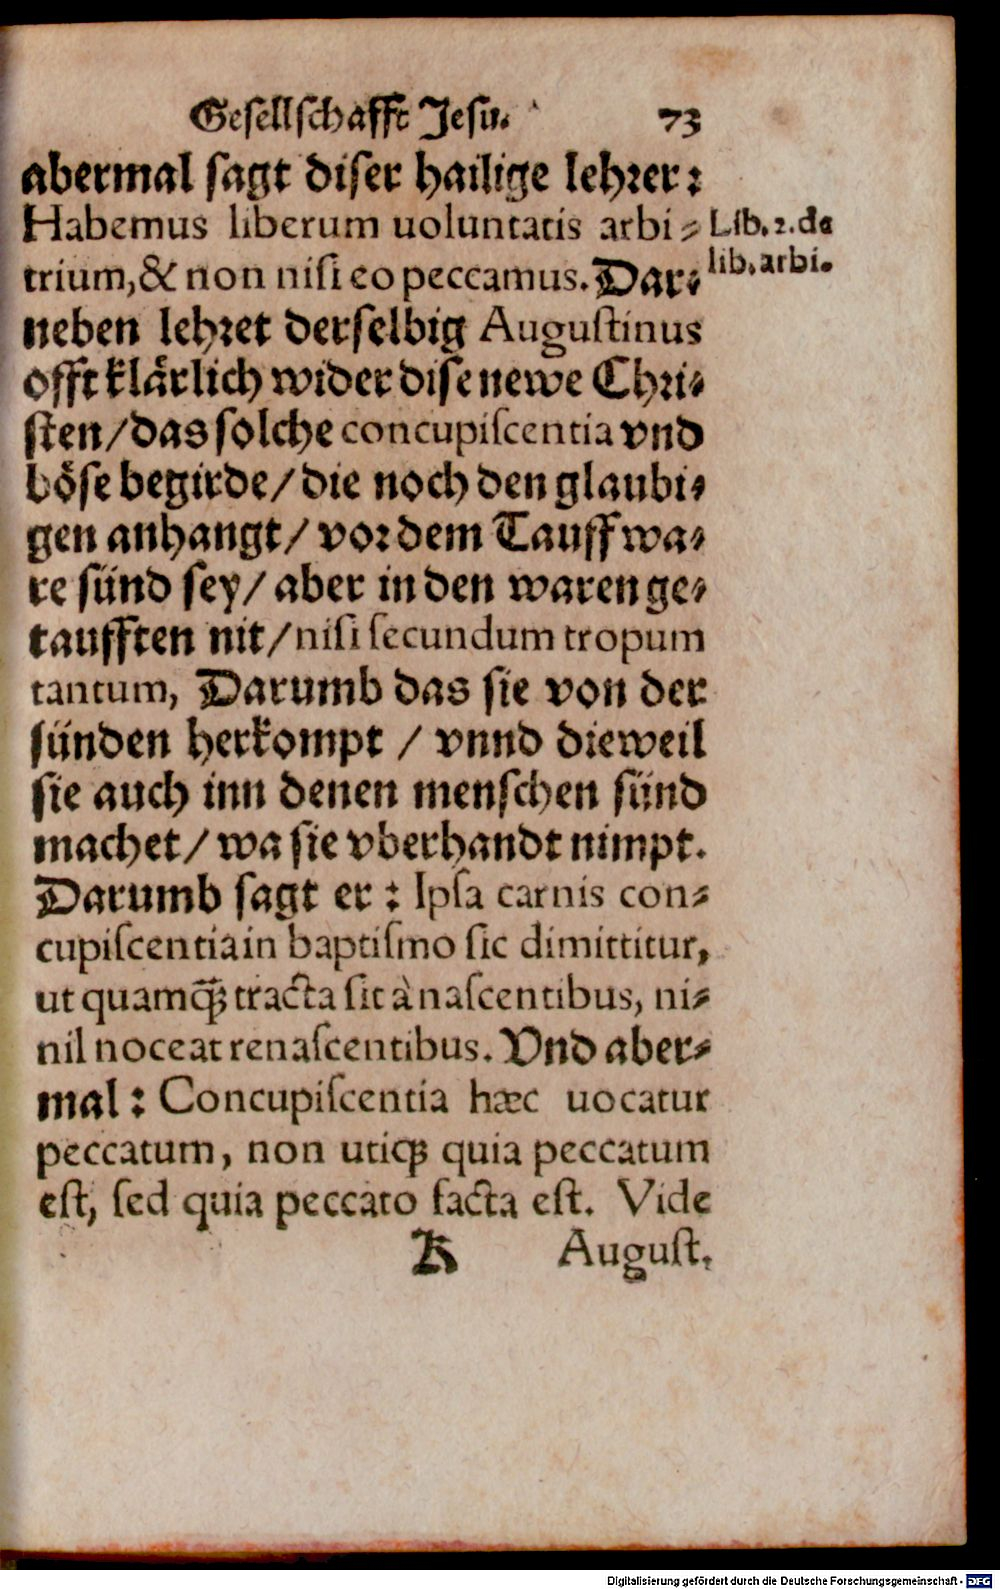 Gesellschafft Jesu. 73
abermal sagt diser hailige lehrer:
Habemus liberum uoluntatis arbi⸗ Lib. 2. de
trium, & non nisi eo peccamus. Dar⸗ lib. arbi.
neben lehret derselbig Augustinus
offt klårlich wider dise newe Chri⸗
sten/das solche concupiscentia vnd
bȯse begirde/die noch den glaubi⸗
gen anhangt/ vor dem Tauff wa⸗
re sünd sey/ aber in den waren ge⸗
taufften nit/nisi secundum tropum
tantum, Darumb das sie von der
sünden herkompt / vnnd dieweil
sie auch inn denen menschen sünd
machet/ wa sie vberhandt nimpt.
Darumb sagt er: Ipsa carnis con⸗
cupiscentia in baptismo sic dimittitur,
ut quamq̃; tracta sit à nascentibus, ni⸗
nil noceat renascentibus. Vnd aber⸗
mal: Concupiscentia hæc uocatur
peccatum, non utiq; quia peccatum
est, sed quia peccato facta est. Vide
K August.
Digitalisierung gefördert durch die Deutsche Forschungsgemeinschaft - DFG